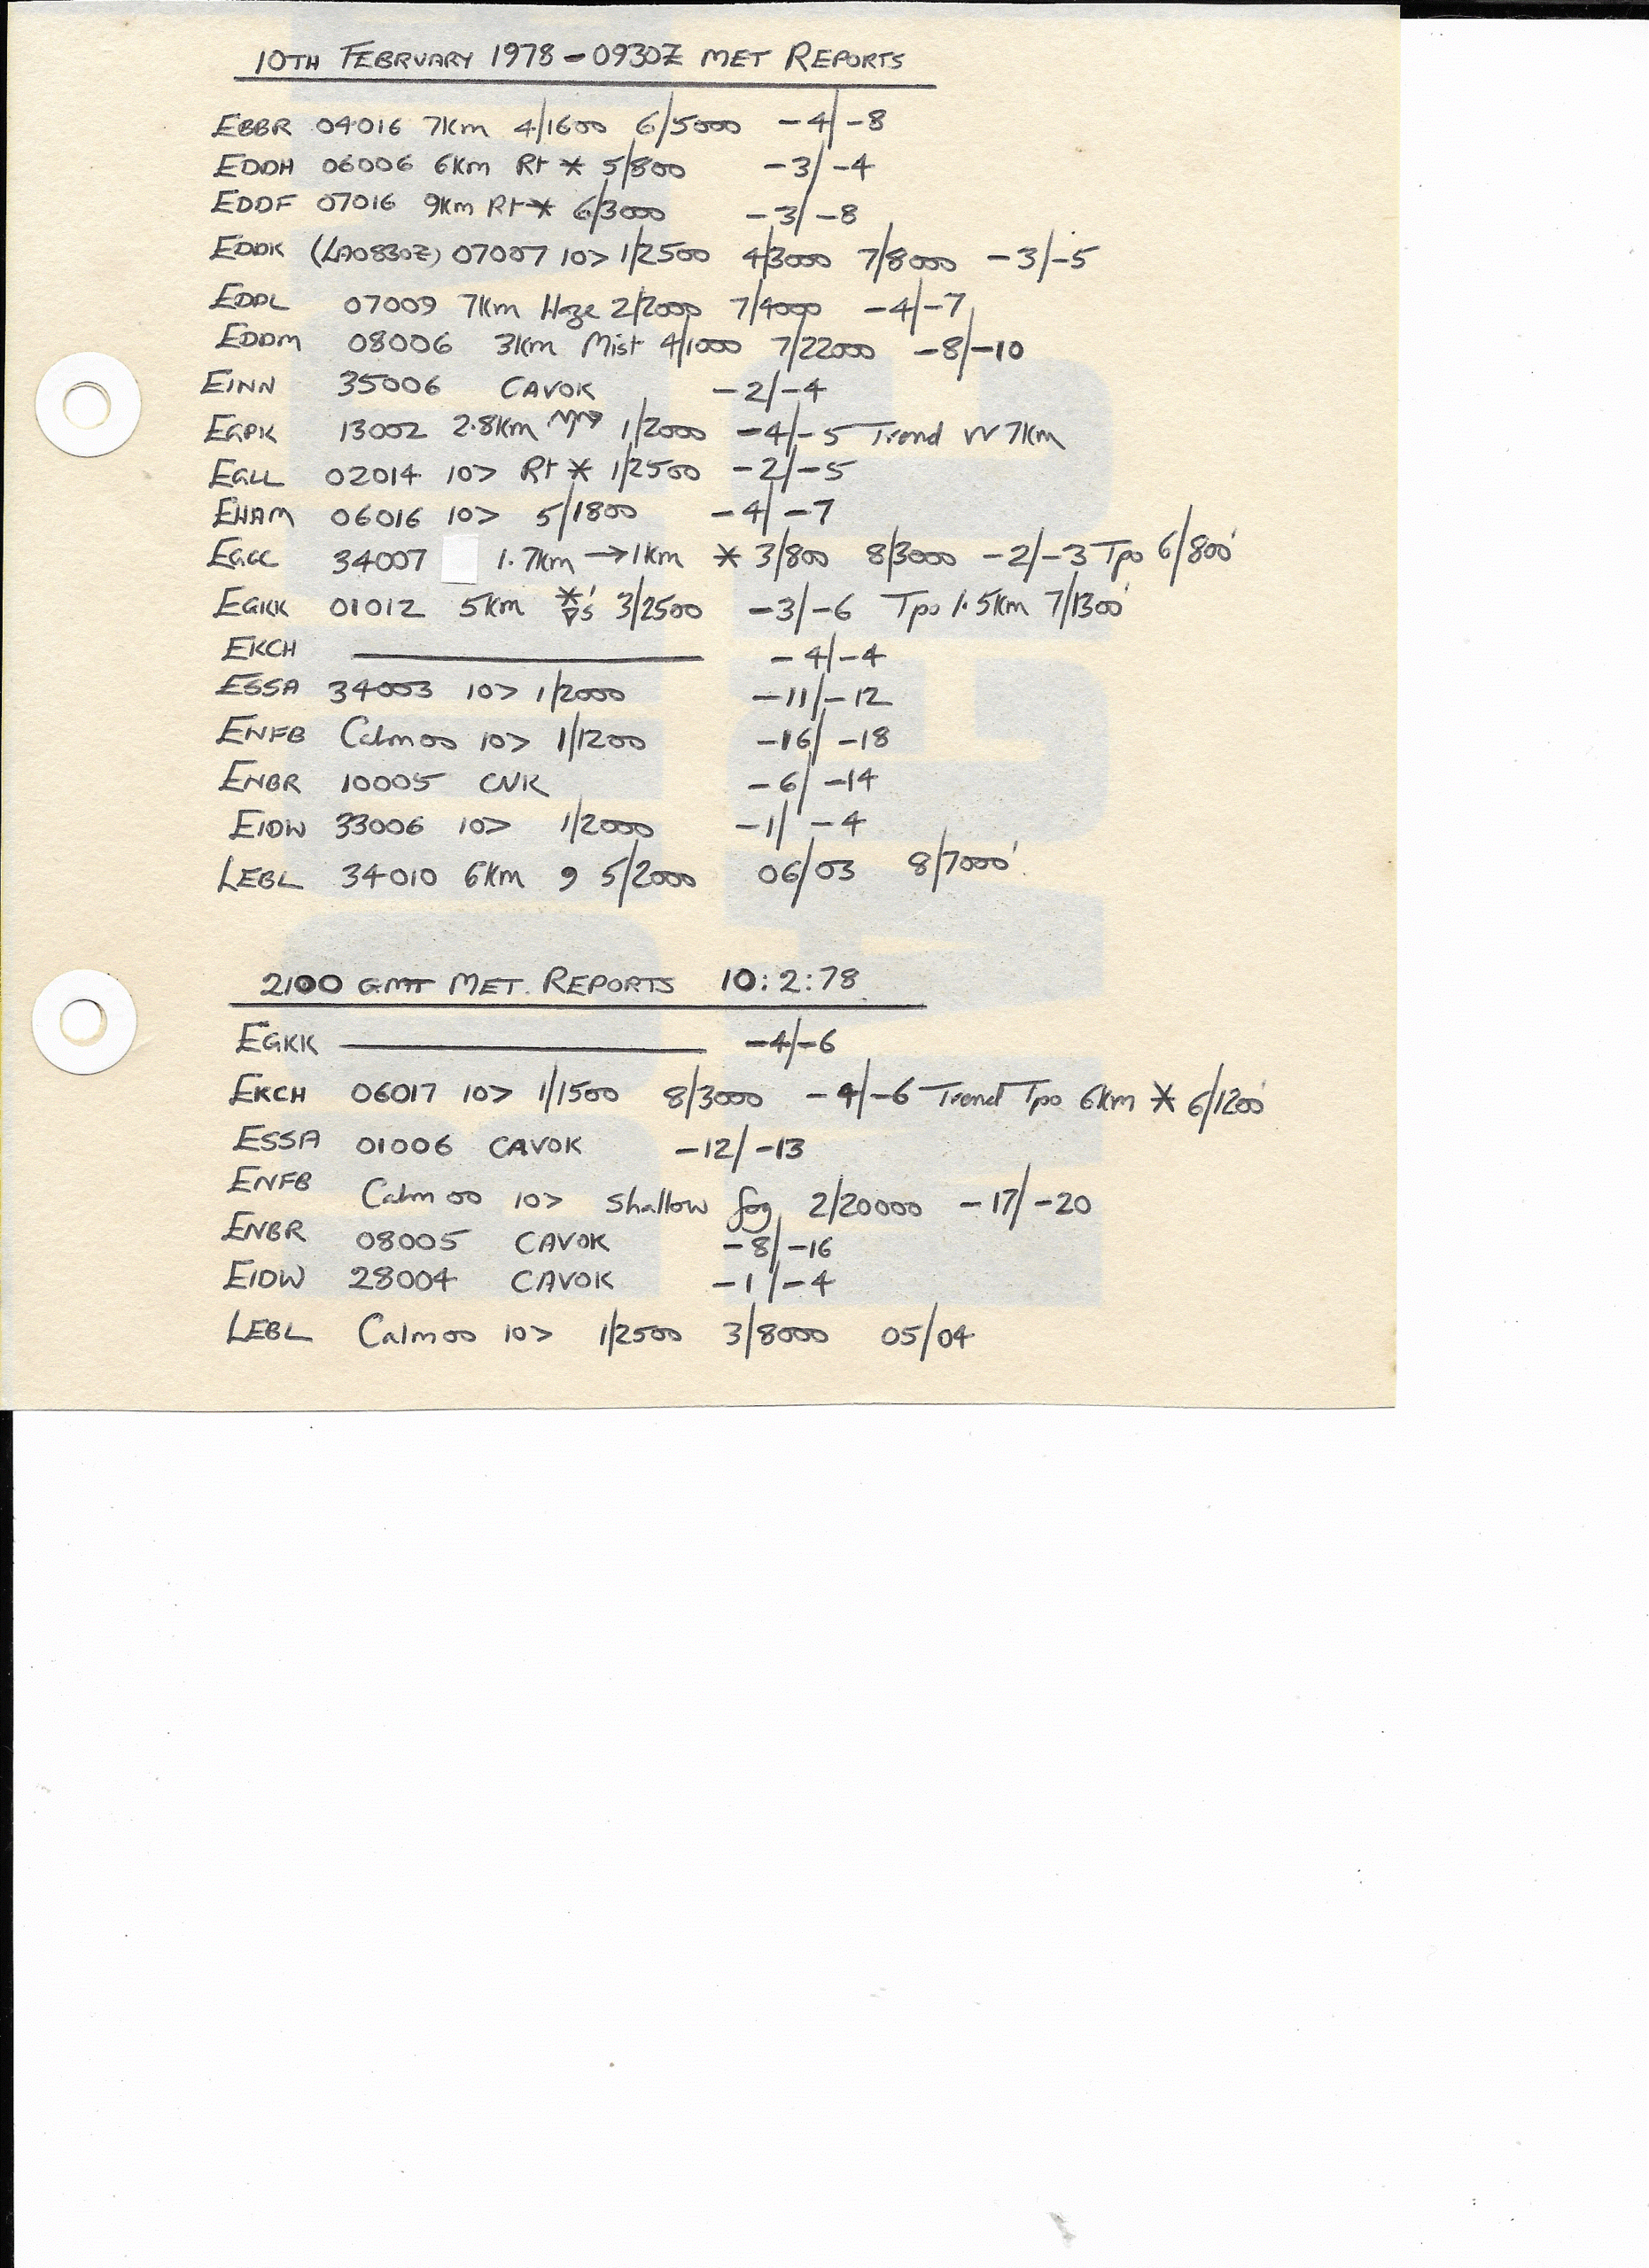 10TH FEBRUARY 1978 - 0930Z MET REPORTS
EBBR 04016 7Km 4/1600 6/5000 -4/-8
EDDH 06006 6Km Rt * 5/800 -3/-4
EDDF 07016 9Km Rt * 6/3000 -3/-8
EDDK (LA0830Z) 07007 10> 1/2500 4/3000 7/8000 -3/-5
EDDL 07009 7Km Haze 2/2000 7/4000 -4/-7
EDDM 08006 3Km Mist 4/1000 7/22000 -8/-10
EINN 35006 CAVOK -2/-4
EGPK 13002 2.8Km 1/2000 -4/-5 Trend VV 7Km
EGLL 02014 10> Rt * 1/2500 -2/-5
EHAM 06016 10> 5/1800 -4/-7
EGCC 34007 1.7Km →1Km * 3/800 8/3000 -2/-3 Tpo 6/800'
EGKK 01012 5Km 3/2500 -3/-6 Tpo 1.5Km 7/1300'
EKCH -4/-4
ESSA 34003 10> 1/2000 -11/-12
ENFB Calm 00 10> 1/1200 -16/-18
ENBR 10005 CVK -6/-14
EIDW 33006 10> 1/2000 -1/-4
LEBL 34010 6Km 9 5/2000 06/03 8/7000'
2100 GMT MET. REPORTS 10:2:78
EGKK -4/-6
EKCH 06017 10> 1/1500 8/3000 -4/-6 Trend Tpo 6Km * 6/1200'
ESSA 01006 CAVOK -12/-13
ENFB Calm 00 10> Shallow fog 2/20000 -17/-20
ENBR 08005 CAVOK -8/-16
EIDW 28004 CAVOK -1/-4
LEBL Calm 00 10> 1/2500 3/8000 05/04